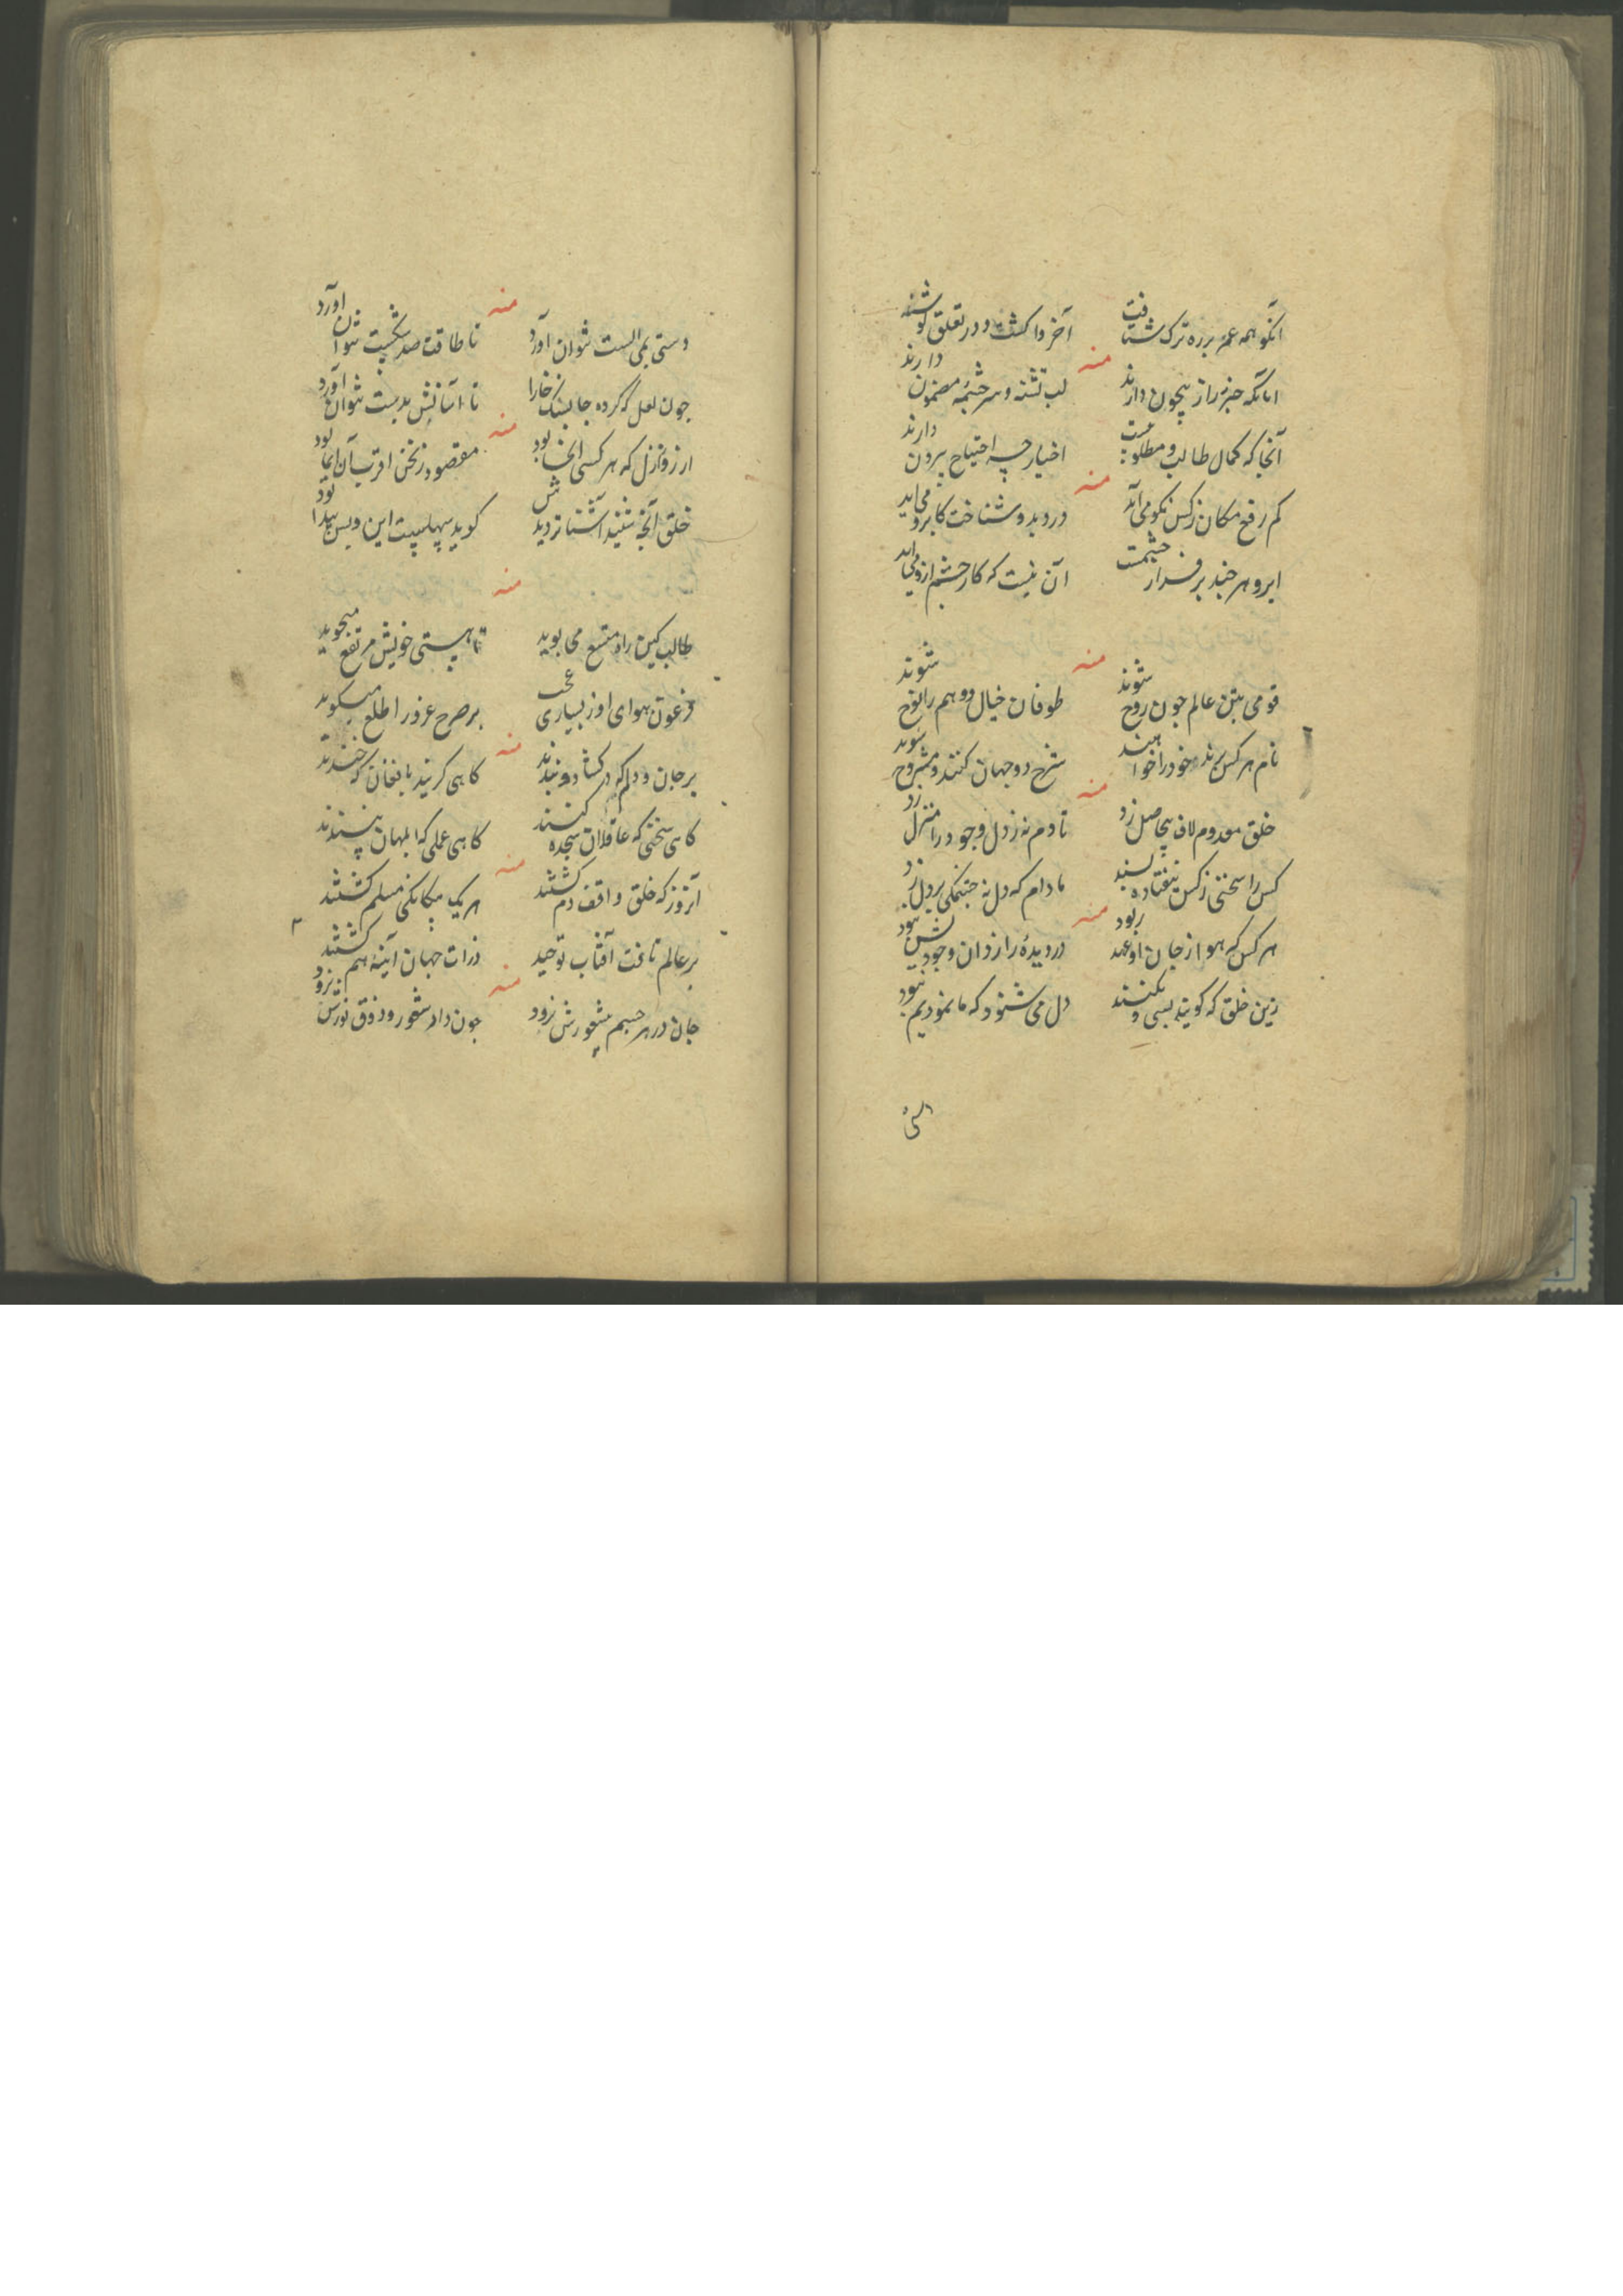 آنکو همه عمر بر ره ترک شتافت
آخر واکشت و در تعلق
منه
آنانکه خبر ز راز بیچون دارند
لب تشنه و سرچشمهٔ مضمون دارند
آنجا که کمال طالب و مطلوبست
اخیار چه احتیاج بیرون دارند
منه
کم رفع مکان ز کس نکو می آید
در دید و شناخت کابرو می آید
ابرو هر چند بر فراز چشمست
آن نیست که کار چشم ازو می آید
منه
قومی بتن عالم چون روح شوند
طوفان خیال و وهم را نوح شوند
نام هر کس خود را خوانند
شرح دو جهان کنند و مشروح شوند
منه
خلق معدوم لاف بیحاصل زد
تا دم نه ز دل وجود را منزل زد
کس را سخنی ز کس نیفتاده پسند
مادام که دل نه چنگی بر دل زد
منه
هر کس که هوا ز جان او عهد ربود
در دیدهٔ رازدان وجودیش نبود
زین خلق که گویند بسی و نکنند
دل می شنود که ما نمودیم نبود
منه
دستی بمی الست نتوان آورد
تا طاقت صد شکست نتوان آورد
چون لعل که کرده جا بسنک خارا
تا آسانش بدست نتوان آورد
منه
از روز ازل که هر کسی آنجا بود
مقصود ز نحن اقرب آن ایما بود
خلق آنچه شنید آشنا تر دیدش
گوید سهلیست این و بس پیدا بود
منه
طالب کین راه متسع می پوید
تا هستی خویش مرتفع میجوید
فرعون هوای او ز بسیاری عجب
بر صرح غرور اطلع میگوید
منه
بر جان و دلم که در گشادند و بندند
گاهی گریند با فغان که خندند
گاهی سخنی که عاقلان سجده کنند
گاهی عملی که ابلهان نپسندند
منه
آنروز که خلق واقف دم گشتند
هر یک بیگانگی مسلم گشتند
بر عالم تافت آفتاب توحید
ذرات جهان آینهٔ هم گشتند
منه
جان در هر جسم بشعورش نرود
چون داد شعور و ذوق نورش نرود